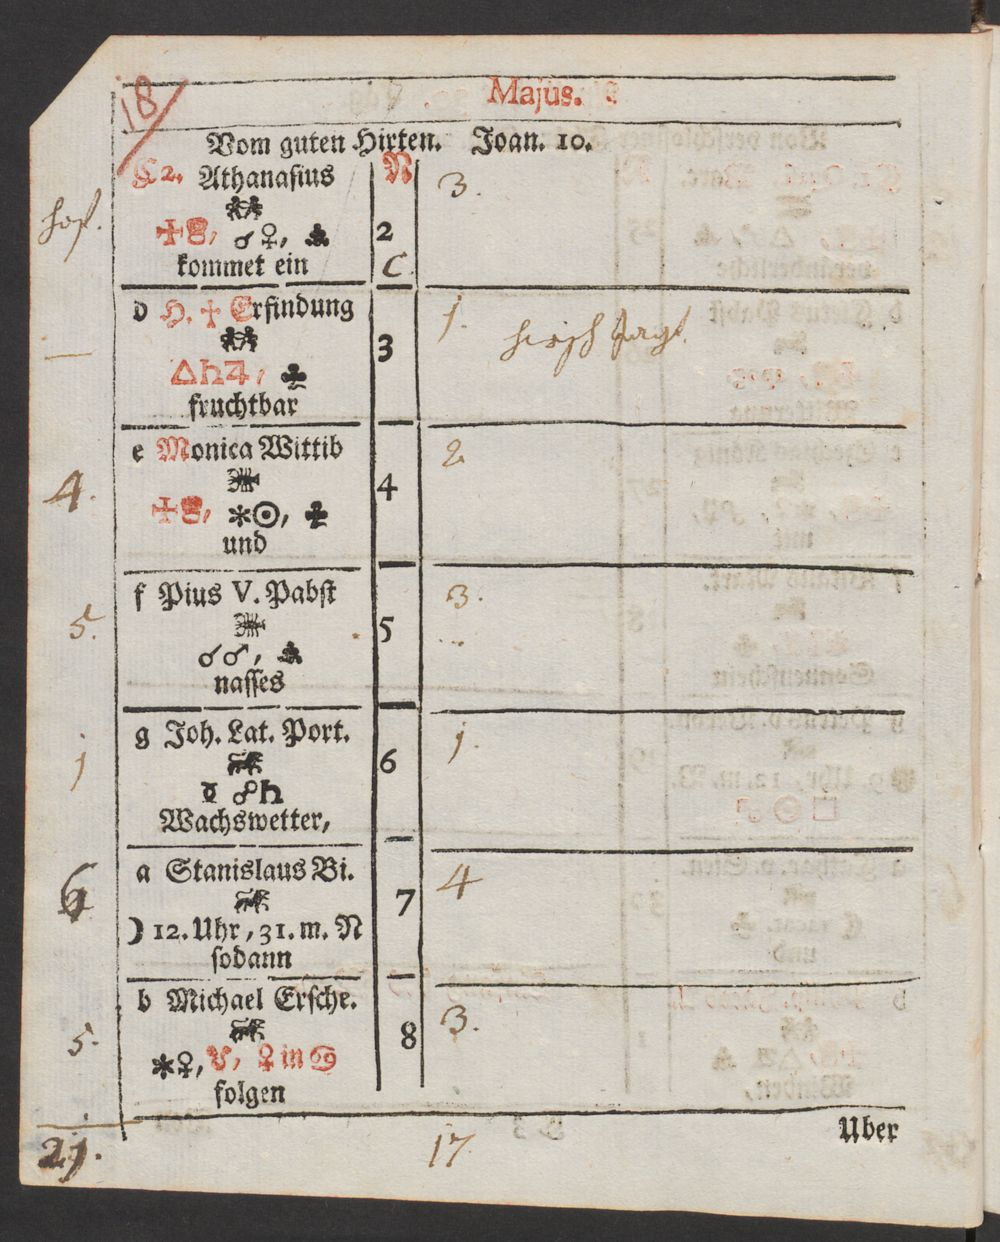 18
Majus.
Vom guten Hirten. Joan. 10.
C 2. Athanasius N 3.
☌♀, 2
kommet ein C
d H. + Erfindung 1.
3
△♄♃,
fruchtbar
e Monica Wittib 2
4. 4
⚹☉,
und
f Pius V. Pabst 3.
5. 5
☌♂,
nasses
g Joh. Lat. Port. 1.
1 6
☿ ☍♄
Wachswetter,
a Stanislaus Bi. 4
6 7
☽ 12. Uhr, 31. m. N
sodann
b Michael Ersche. 3.
5. 8
⚹♀, ♀ in ♋
folgen
Uber
21. 17